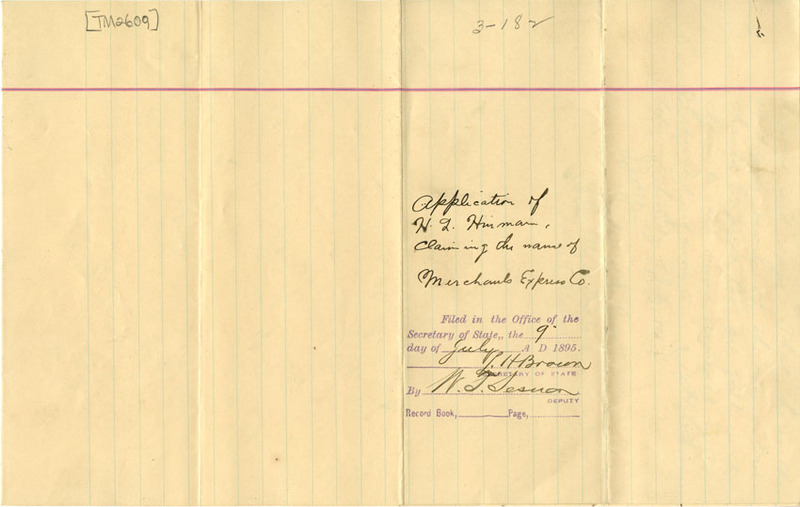 [TM2609]
3-182
Application of
H. L. Hinman,
Claiming the name of
Merchants Express Co.
Filed in the Office of the
Secretary of State,, the 9
day of July A D 1895.
L. H Brown
SECRETARY OF STATE
By W. T. Sesnon
DEPUTY
Record Book, Page,